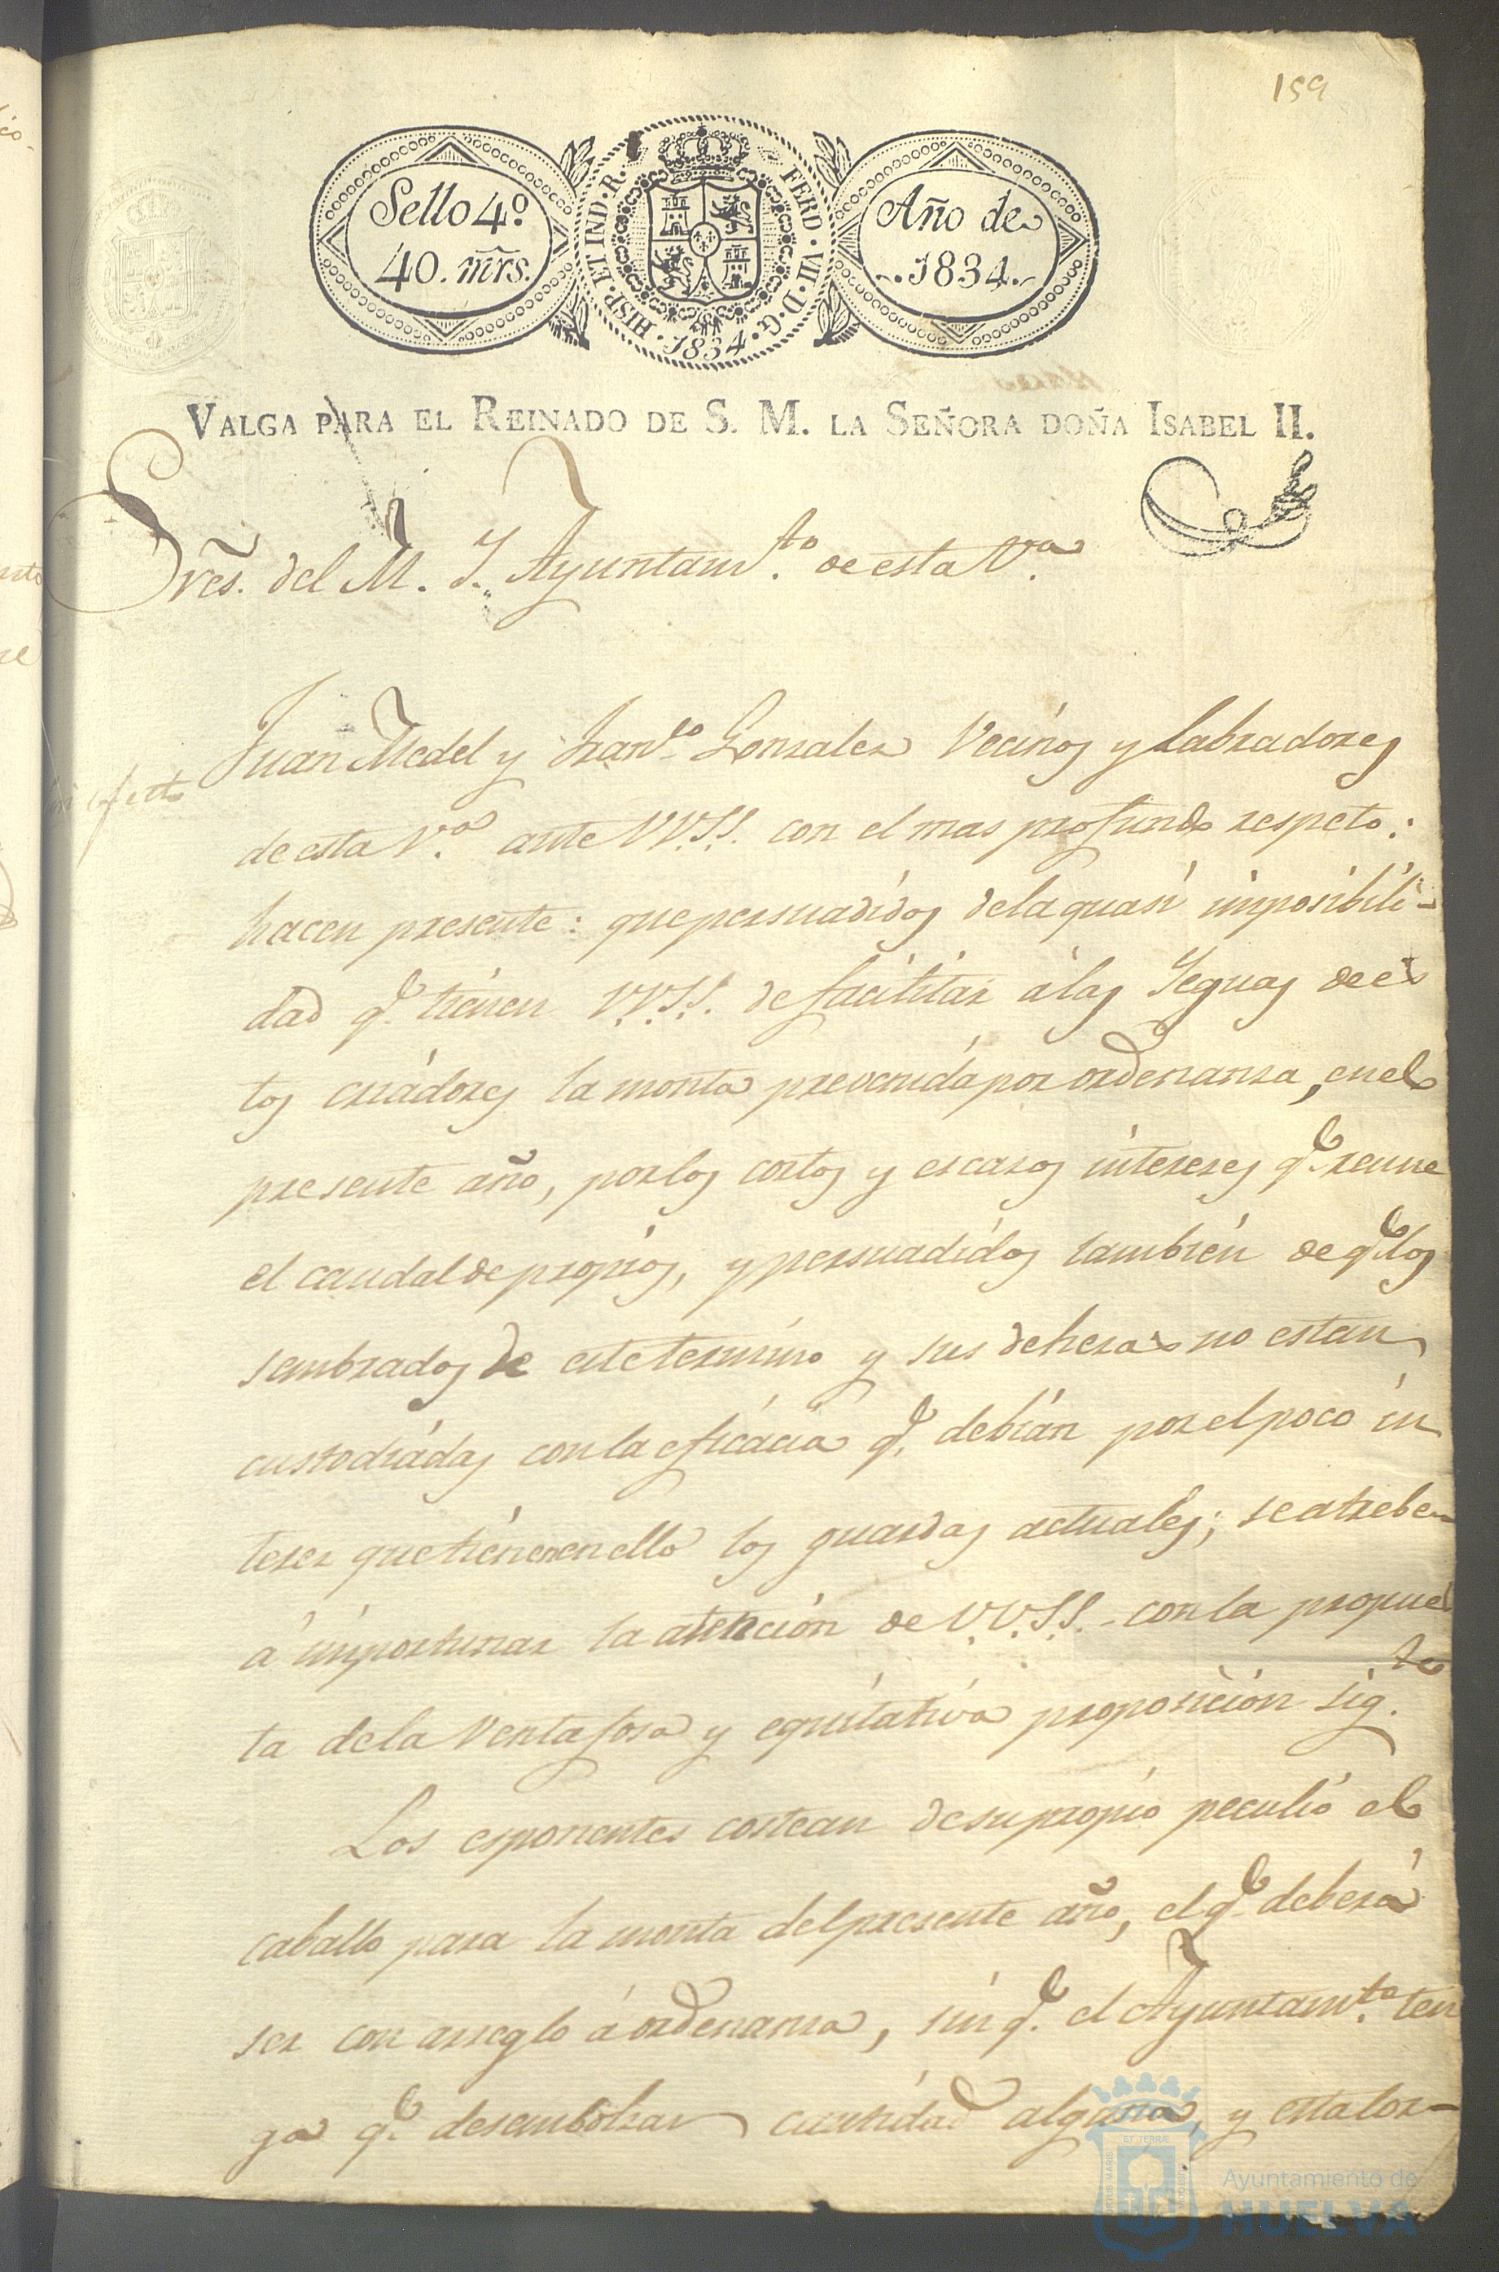 159
Sello 4º
40. mrs.
HISP. ET IND. R. FERD. VII. D. G. 1834.
Año de
1834.
VALGA PARA EL REINADO DE S. M. LA SEÑORA DOÑA ISABEL II.
Sres. del M. Y. Ayuntamto. de esta Va.
Juan Medel y Franco. Gonzalez Vecinos y Labradores
de esta Va. ante V.V.S.S. con el mas profundo respeto:
hacen presente: que persuadidos de la quasi imposibili-
dad q.e tienen V.V.S.S. de facilitar á las Yeguas de es
tos criadores la monta prevenida por ordenanza, en el
presente año, por los cortos y escasos intereses q.e reune
el caudal de propios, y persuadidos tambien de q.e los
sembrados de este termino y sus dehesas no estan
custodiadas con la eficacia q.e debian por el poco in
teres que tienen en ello los guardas actuales; se atreben
á importunar la atencion de V.V.S.S. con la propues
ta de la Ventajosa y equitativa proposicion sigte.
Los esponentes costean de su propio peculio el
caballo para la monta del presente año, el q.e deberá
ser con arreglo á ordenanza, sin q.e el Ayuntamto. ten
ga q.e desembolzar cantidad alguna, y esta lor-
Ayuntamiento de
HUELVA